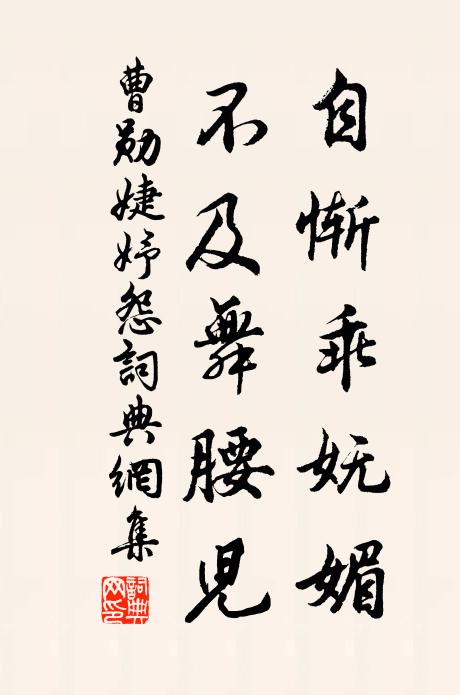 自慚乖妩媚
不及舞腰児
曹勛婕妤怨詞典網集
詞典网印